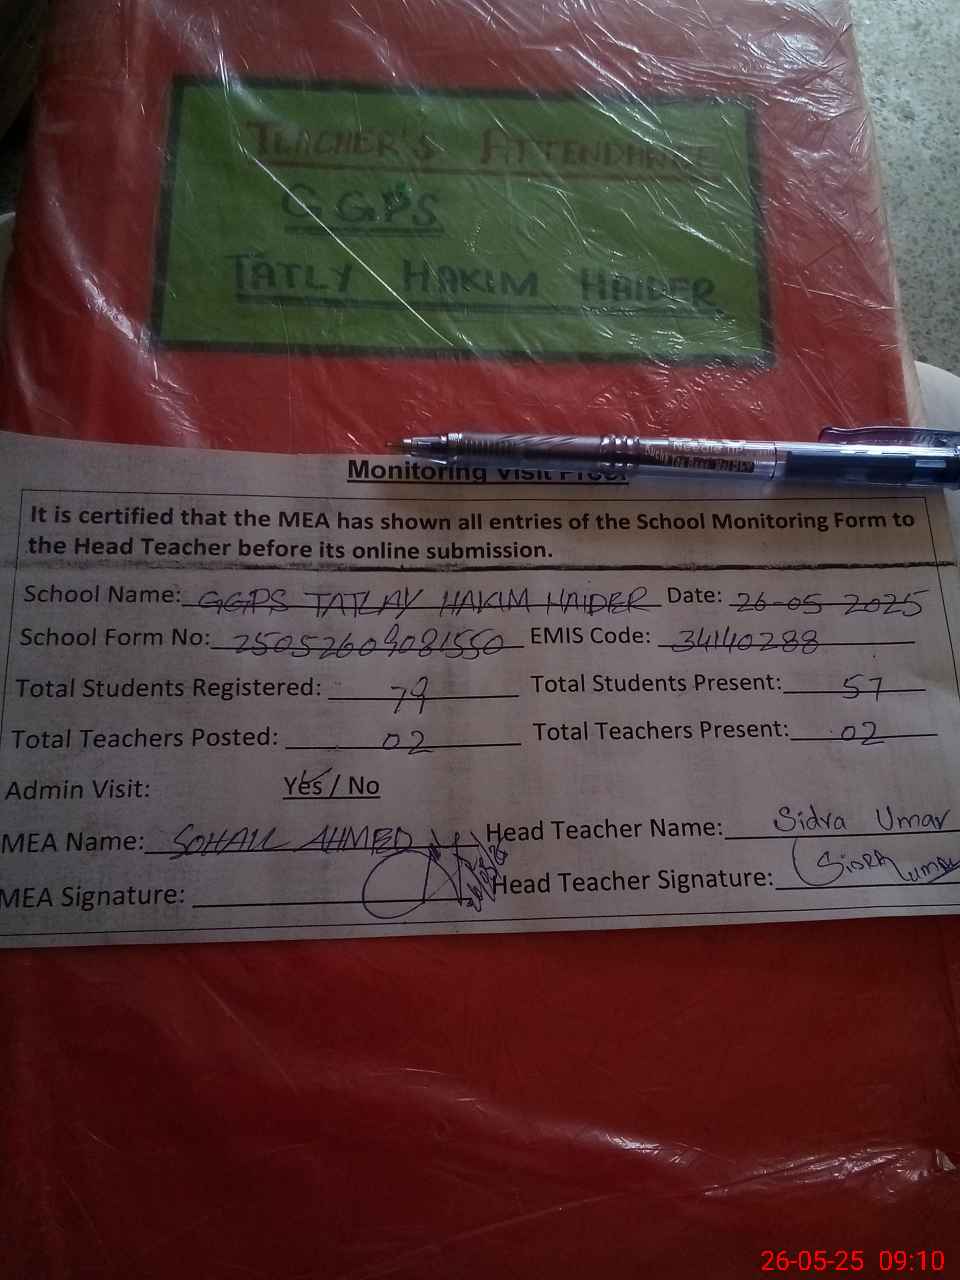 TEACHER'S ATTENDANCE
GGPS
TATLY HAKIM HAIDER
Monitoring Visit Proof
It is certified that the MEA has shown all entries of the School Monitoring Form to
the Head Teacher before its online submission.
School Name: GGPS TATLAY HAKIM HAIDER Date: 26-05 2025
School Form No: 25052609081550 EMIS Code: 34140288
Total Students Registered: 79 Total Students Present: 57
Total Teachers Posted: 02 Total Teachers Present: 02
Admin Visit: Yes / No
MEA Name: SOHAIL AHMED Head Teacher Name: Sidra Umar
MEA Signature: Head Teacher Signature: SIDRA UMAR
26-05-25 09:10